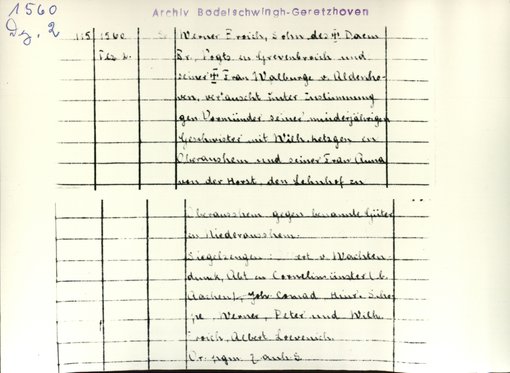 1560
Dez. 2
Archiv Bodelschwingh-Geretzhoven
115 1560 Werner Froich, Sohn des Daem
Dez 2. Fr., Vogts zu Grevenbroich und
seiner Frau Walburge v. Aldenho-
ven, vertauscht unter Zustimmung
gen Vormünder seiner minderjährigen
Geschwister mit Wilh. in
Oberaussem und seiner Frau Anna
von der Horst, den Lehnhof zu
Oberaussem gegen benannte Güter
in Niederaussem.
Siegelzeugen: v. Wachten
donk, Abt zu Cornelimünster (b.
Aachen), Joh. Conrad,
Werner, Peter und Wilh.
Froich, Albert Loevenich.
Or. Pgm. 7 anh. S.